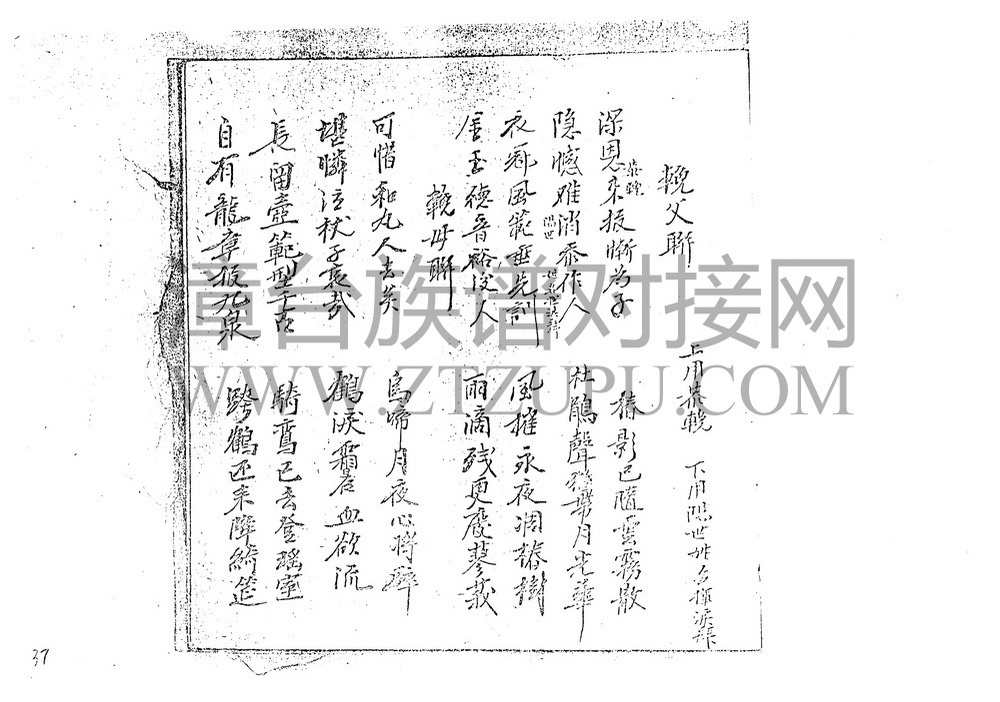 輓父聯 上用恭輓 下用陽世姓名揮淚拜
深恩未报慚为子 椿影已隨雲霧散
恭輓
隐憾难消忝作人 杜鵑聲 月光華
陽世
衣鄉風範垂先訓 風摧永夜凋椿樹
金玉德音裕後人 雨滴残更廢蓼莪
輓母聯
可惜和丸人去矣 烏啼月夜心將碎
堪憐泣杖子哀哉 鶴淚霜 血欲流
長留壼範型千古 騎鸞已去登瑤室
自有龍章报九泉 跨鶴还来降綺筵
37
章台族谱对接网
WWW.ZTZUPU.COM